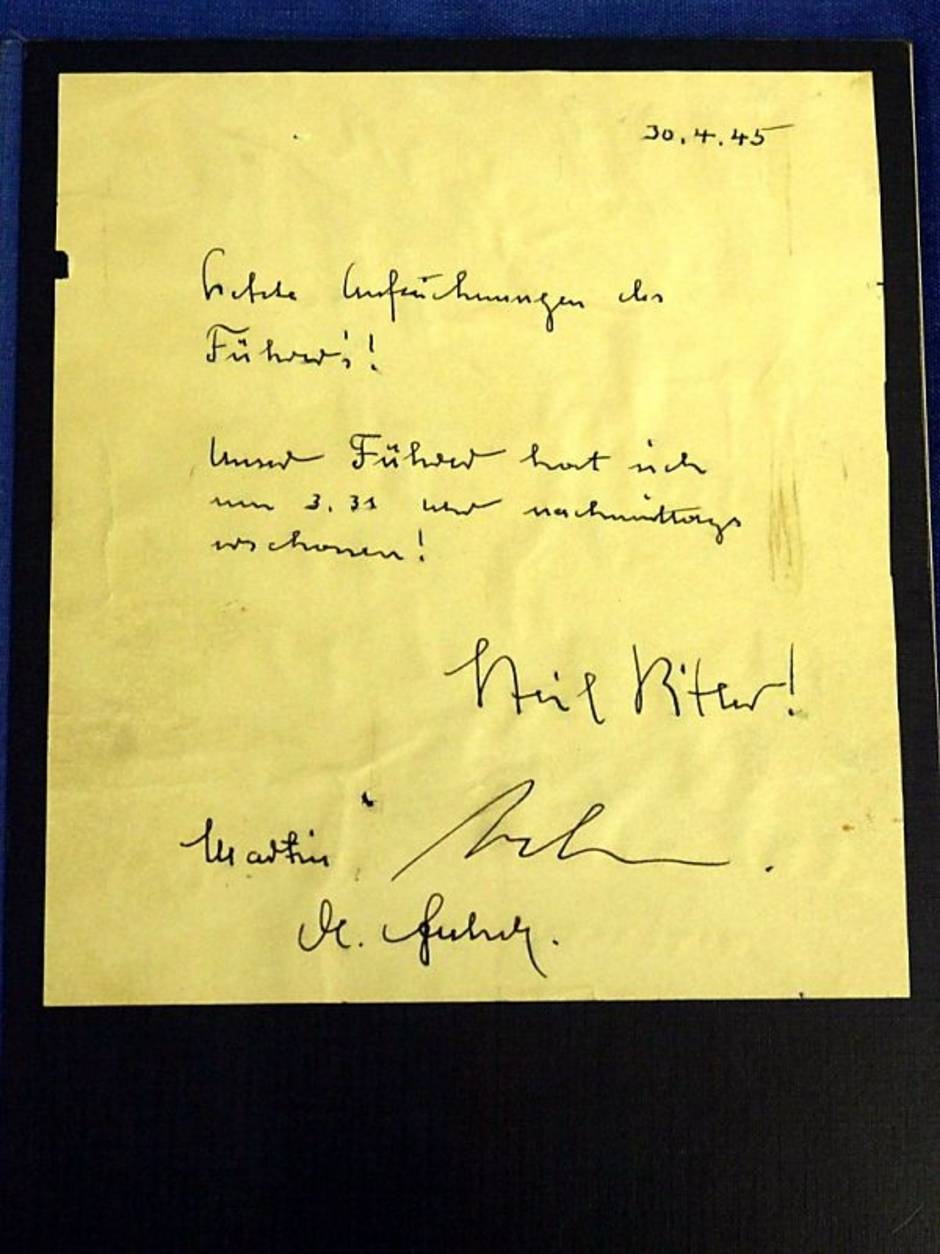 30.4.45
Letzte Aufzeichnungen des
Führer's!
Unser Führer hat sich
um 3.31 Uhr nachmittags
erschossen!
Heil Hitler!
Martin
Dr.